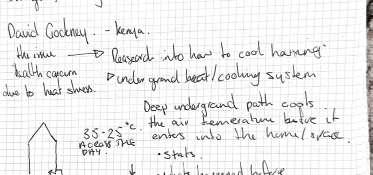 David Gockney. - Kenya.
the issue → Research into how to cool housing.
health concern → underground heat/cooling system
due to heat stress.
Deep underground path cools
the air temerature before it
35-25°C. enters into the home/space
ACROSS THE
DAY. • stats.
before